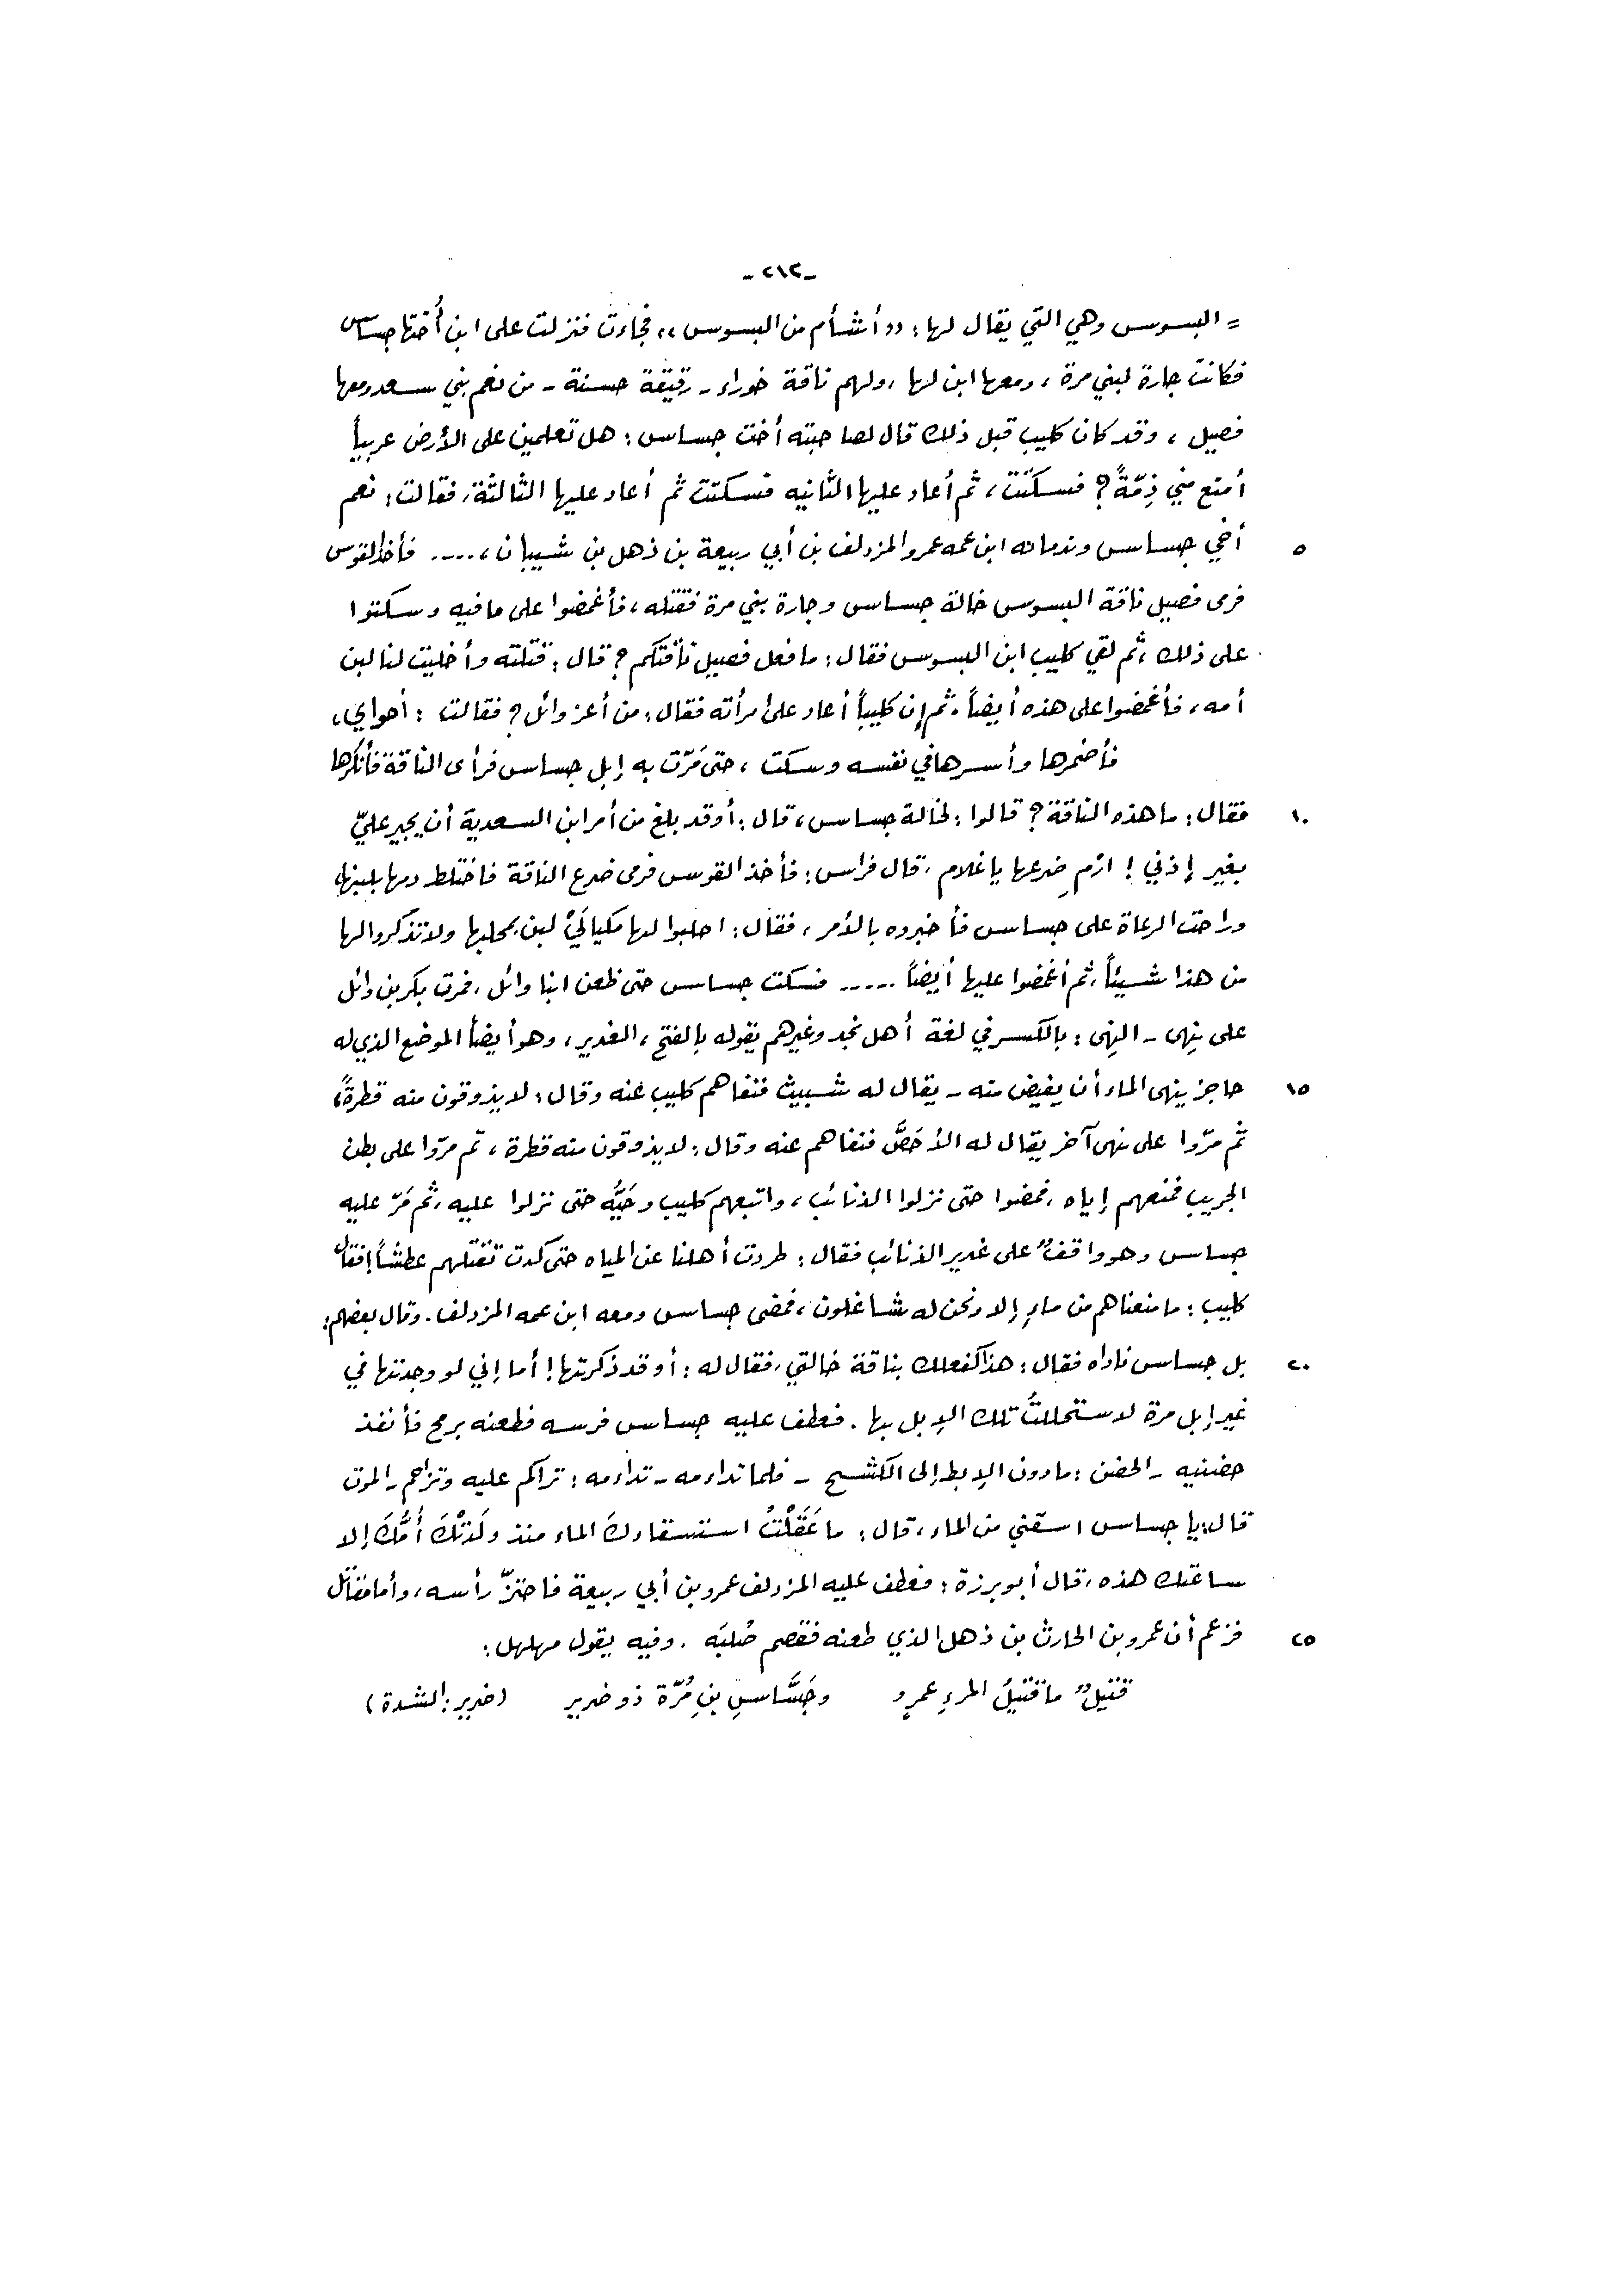 -٢١٢-
= البسوس وهي التي يقال لها: ،،أشأم من البسوس،، فجاءت فنزلت على ابن أُختها جساس
فكانت جارة لبني مرة، ومعها ابن لها، ولهم ناقة خوراء - رقيقة حسنة - من نعم بني سعد ومعها
فصيل، وقد كان كليب قبل ذلك قال لصاحبته أخت جساس: هل تعلمين على الأرض عربياً
أمنع مني ذِمّةً؟ فسكتت، ثم أعاد عليها الثانيه فسكتت ثم أعاد عليها الثالثة، فقالت: نعم
٥ أخي جساس وندمانه ابن عمه عمرو المزدلف بن أبي ربيعة بن ذهل بن شيبان، .... فأخذ القوس
فرمى فصيل ناقة البسوس خالة جساس وجارة بني مرة فقتله، فأغمضوا على ما فيه وسكتوا
على ذلك، ثم لقي كليب ابن البسوس فقال: ما فعل فصيل ناقتكم؟ قال: قتلته وأخليت لنا لبن
أمه، فأغمضوا على هذه أيضاً. ثم إن كليباً أعاد على امرأته فقال: من أعز وائل؟ فقالت: أخواي،
فأضمرها وأسرها في نفسه وسكت، حتى مَرّت به إبل جساس فرأى الناقة فأنكرها
١٠ فقال: ما هذه الناقة؟ قالوا: لخالة جساس، قال: أوقد بلغ من أمر ابن السعدية أن يجير عليّ
بغير إذني! ارمِ ضرعها يا غلام، قال فراس: فأخذ القوس فرمى ضرع الناقة فاختلط دمها بلبنها،
وراحت الرعاة على جساس فأخبروه بالأمر، فقال: احلبوا لها مكيالَيْ لبن بمحلبها ولا تذكروا لها
من هذا شيئاً، ثم أغمضوا عليها أيضاً ..... فسكت جساس حتى ظعن ابنا وائل، فمرت بكر بن وائل
على نِهى - النِهى: بالكسر في لغة أهل نجد وغيرهم يقوله بالفتح، الغدير، وهو أيضاً الموضع الذي له
١٥ حاجز ينهى الماء أن يفيض منه - يقال له شبيث فنفاهم كليب عنه وقال: لا يذوقون منه قطرةً،
ثم مرّوا على نهى آخر يقال له الأحَصَّ فنفاهم عنه وقال: لا يذوقون منه قطرة، ثم مرّوا على بطن
الجريب فمنعهم إياه، فمضوا حتى نزلوا الذنائب، واتبعهم كليب وحَيُّه حتى نزلوا عليه، ثم مَرّ عليه
جساس وهو واقفٌ على غدير الذنائب فقال: طردت أهلنا عن المياه حتى كدت تقتلهم عطشاً! فقال
كليب: ما منعناهم من ماءٍ إلا ونحن له شاغلون، فمضى جساس ومعه ابن عمه المزدلف. وقال بعضهم:
٢٠ بل جساس ناداه فقال: هذا كفعلك بناقة خالتي، فقال له: أوقد ذكرتها! أما إني لو وجدتها في
غير إبل مرة لاستحللتُ تلك الإبل بها. فعطف عليه جساس فرسه فطعنه برمح فأنفذ
حضنيه - الحضن: ما دون الإبط إلى الكشح - فلما تداءمه - تداءمه: تراكم عليه وتزاحم - الموت
قال: يا جساس اسقني من الماء، قال: ما عَقَلْتُ استسقاءكَ الماء منذ ولَدَتْكَ أُمُّكَ إلا
ساعتك هذه، قال أبو برزة: فعطف عليه المزدلف عمرو بن أبي ربيعة فاحتزّ رأسه، وأما مقاتل
٢٥ فزعم أن عمرو بن الحارث بن ذهل الذي طعنه فقصم صُلبَه. وفيه يقول مهلهل:
قتيلٌ ما قتيلُ المرءِ عمرٍو وجَسَّاسِ بنِ مُرّة ذو ضرير (ضرير: الشدة)